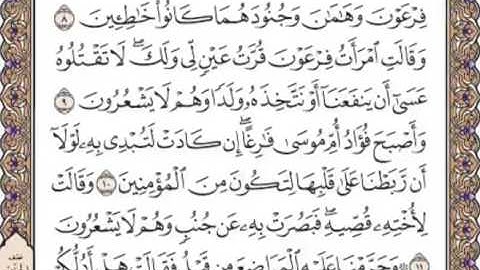 فِرْعَوْنَ وَهَـٰمَـٰنَ وَجُنُودَهُمَا كَانُوا۟ خَـٰطِـِٔينَ ٨
وَقَالَتِ ٱمْرَأَتُ فِرْعَوْنَ قُرَّتُ عَيْنٍ لِّى وَلَكَ ۖ لَا تَقْتُلُوهُ
عَسَىٰٓ أَن يَنفَعَنَآ أَوْ نَتَّخِذَهُۥ وَلَدًا وَهُمْ لَا يَشْعُرُونَ ٩
وَأَصْبَحَ فُؤَادُ أُمِّ مُوسَىٰ فَـٰرِغًا ۖ إِن كَادَتْ لَتُبْدِى بِهِۦ لَوْلَآ
أَن رَّبَطْنَا عَلَىٰ قَلْبِهَا لِتَكُونَ مِنَ ٱلْمُؤْمِنِينَ ١٠ وَقَالَتْ
لِأُخْتِهِۦ قُصِّيهِ ۖ فَبَصُرَتْ بِهِۦ عَن جُنُبٍ وَهُمْ لَا يَشْعُرُونَ
١١ وَحَرَّمْنَا عَلَيْهِ ٱلْمَرَاضِعَ مِن قَبْلُ فَقَالَتْ هَلْ أَدُلُّكُمْ